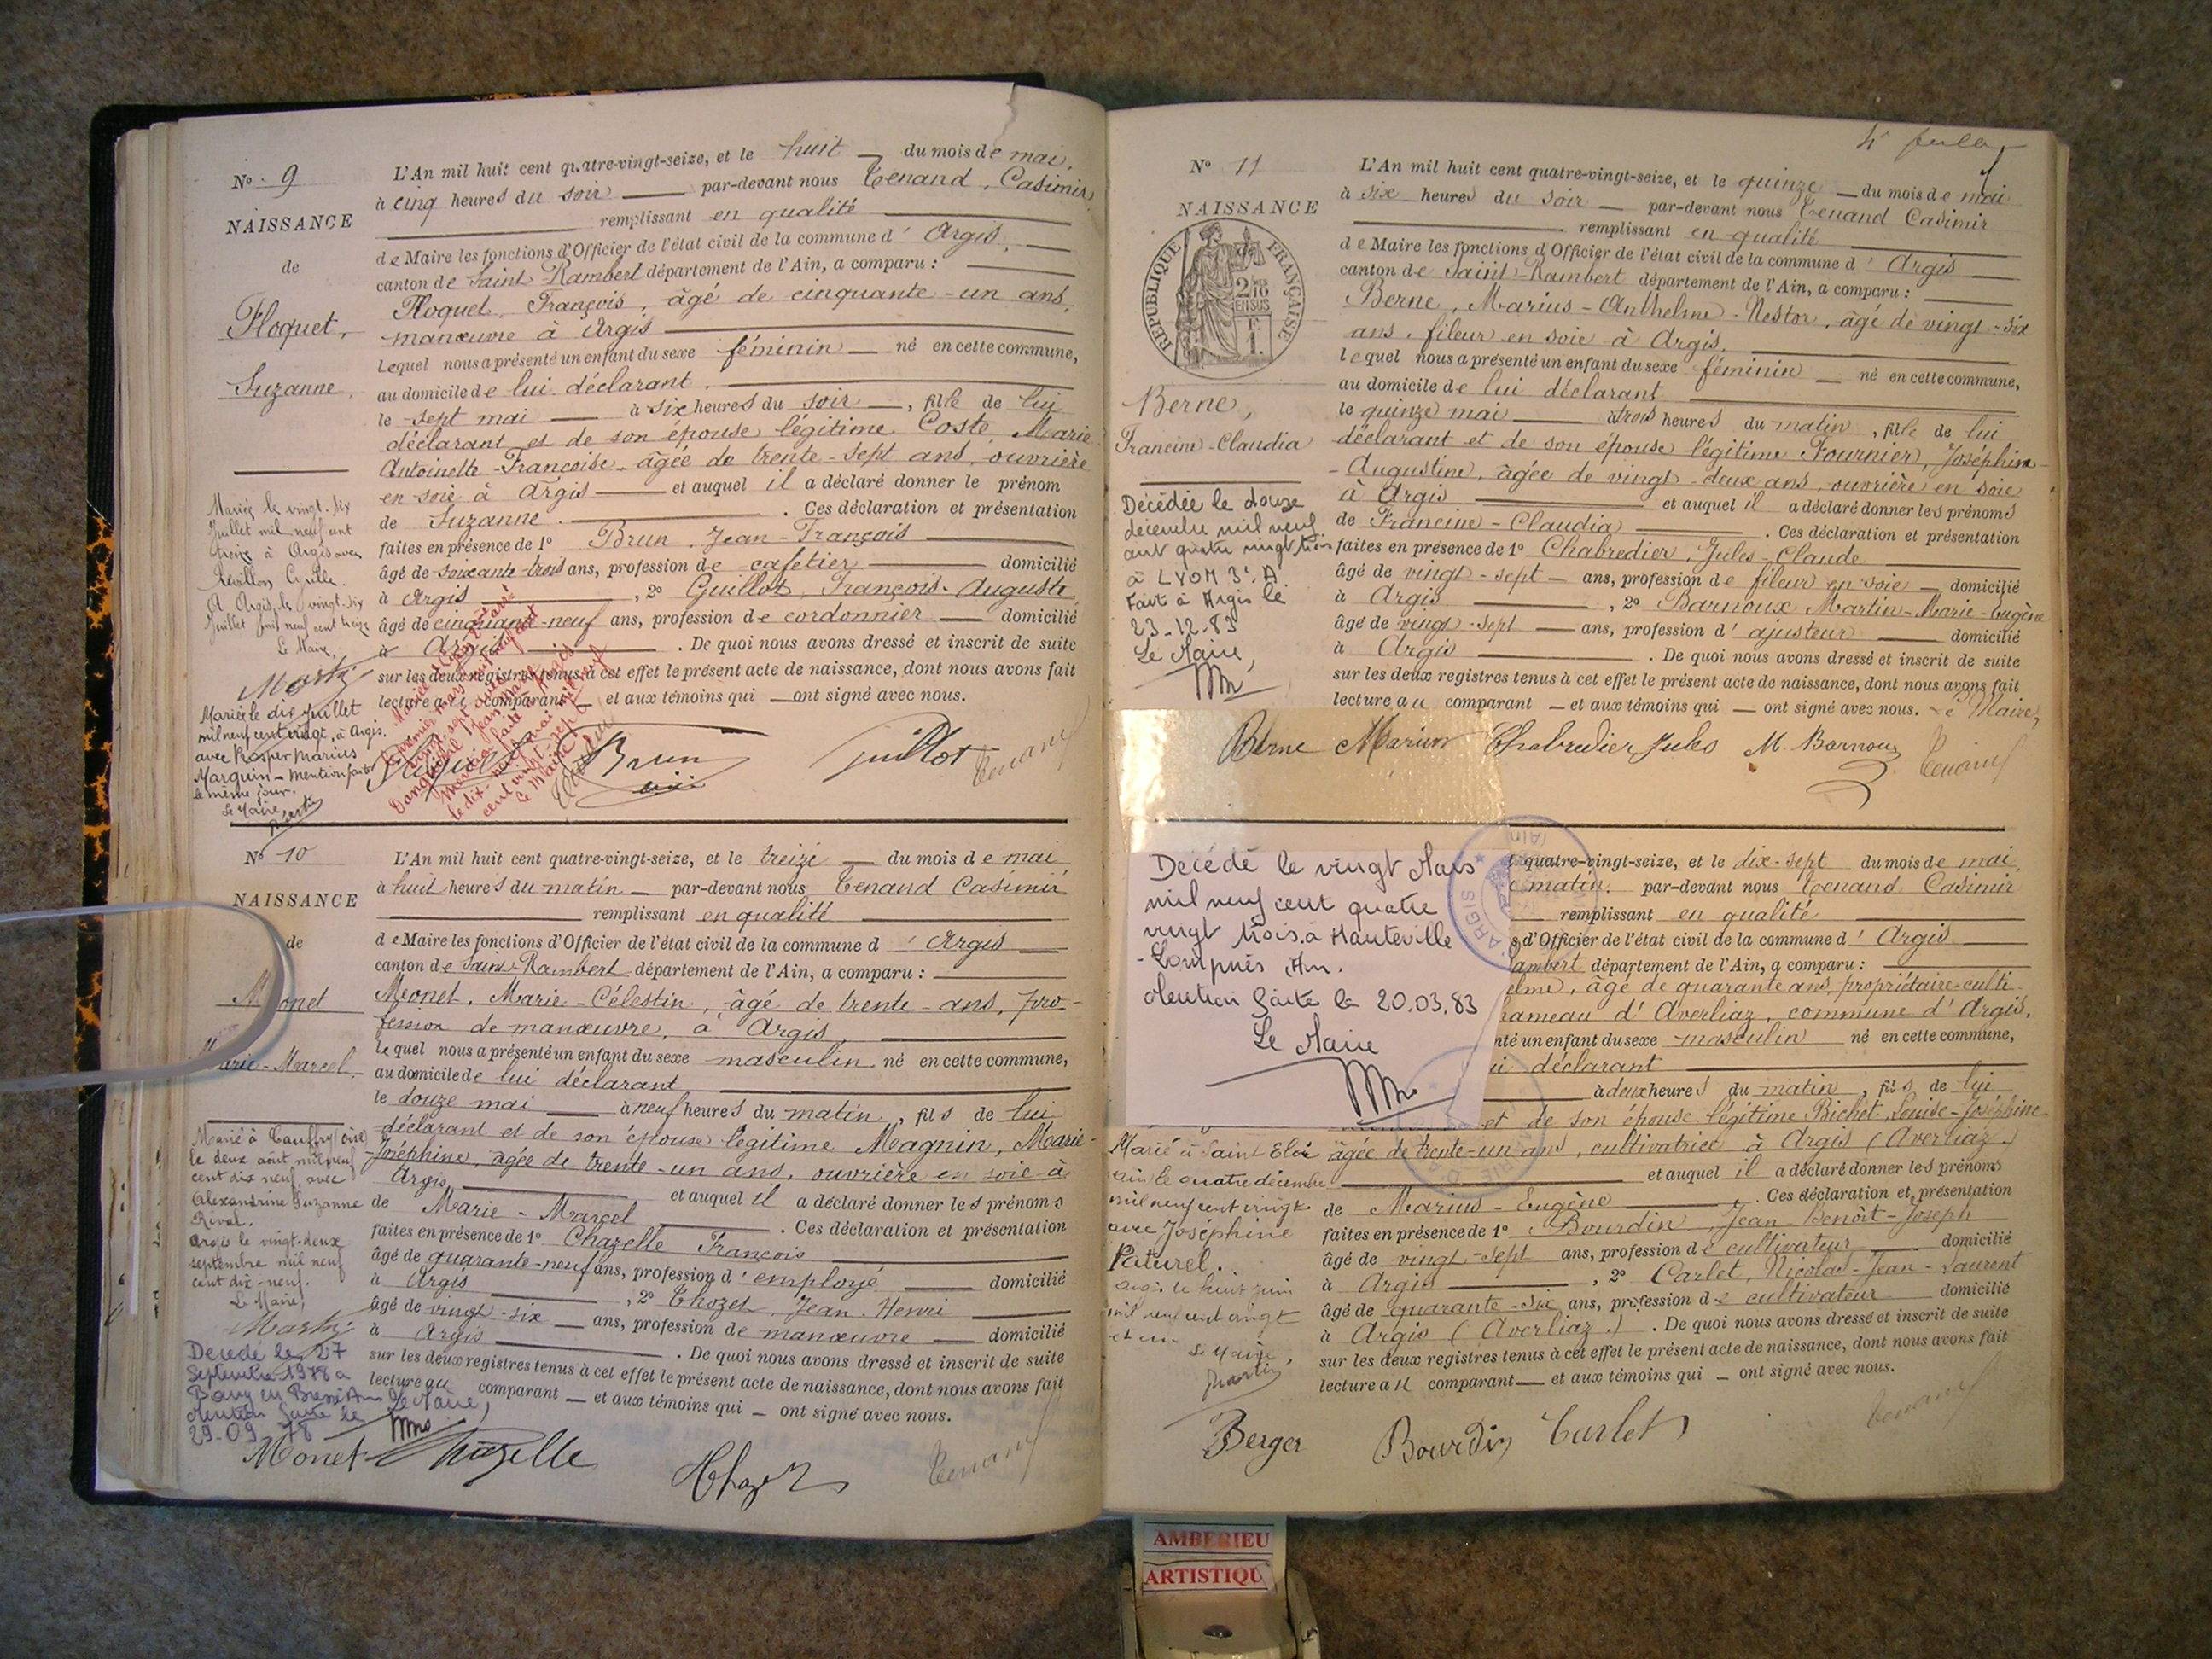 N° 9
NAISSANCE
de
Floquet,
Suzanne.
L'An mil huit cent quatre-vingt-seize, et le huit du mois de mai,
à cinq heures du soir par-devant nous Tenand, Casimir
remplissant en qualité
de Maire les fonctions d'Officier de l'état civil de la commune d' Argis,
canton de Saint-Rambert département de l'Ain, a comparu :
Floquet, François, âgé de cinquante-un ans,
manœuvre à Argis
Lequel nous a présenté un enfant du sexe féminin né en cette commune,
au domicile de lui déclarant.
le sept mai à six heures du soir, fille de lui
déclarant et de son épouse légitime Coste, Marie
Antoinette-Françoise, âgée de trente-sept ans, ouvrière
en soie à Argis et auquel il a déclaré donner le prénom
de Suzanne. Ces déclaration et présentation
faites en présence de 1° Brun, Jean-François
âgé de soixante-trois ans, profession de cafetier domicilié
à Argis, 2° Guillot, François-Auguste
âgé de cinquante-neuf ans, profession de cordonnier domicilié
à Argis. De quoi nous avons dressé et inscrit de suite
sur les deux registres tenus à cet effet le présent acte de naissance, dont nous avons fait
lecture au comparant et aux témoins qui ont signé avec nous.
Mariée le vingt-six
Juillet mil neuf cent
treize à Argis avec
Révillon
A Argis, le vingt-six
Juillet mil neuf cent treize
Le Maire,
Martin
Mariée le dix juillet
mil neuf cent vingt, à Argis,
avec Prosper Marius
Marquin - Mention faite
le même jour.
Le Maire,
Martin
Brun
Guillot
Tenand
N° 10
NAISSANCE
de
Monet
Marie-Marcel.
L'An mil huit cent quatre-vingt-seize, et le treize du mois de mai
à huit heures du matin par-devant nous Tenand Casimir
remplissant en qualité
de Maire les fonctions d'Officier de l'état civil de la commune d' Argis
canton de Saint-Rambert département de l'Ain, a comparu :
Monet, Marie-Célestin, âgé de trente-ans, pro-
fession de manœuvre, à Argis
lequel nous a présenté un enfant du sexe masculin né en cette commune,
au domicile de lui déclarant
le douze mai à neuf heures du matin, fils de lui
déclarant et de son épouse légitime Magnin, Marie-
Joséphine, âgée de trente-un ans, ouvrière en soie à
Argis et auquel il a déclaré donner les prénoms
de Marie-Marcel. Ces déclaration et présentation
faites en présence de 1° Chazelle François
âgé de quarante-neuf ans, profession d' employé domicilié
à Argis, 2° Thozet, Jean-Henri
âgé de vingt-six ans, profession de manœuvre domicilié
à Argis. De quoi nous avons dressé et inscrit de suite
sur les deux registres tenus à cet effet le présent acte de naissance, dont nous avons fait
lecture au comparant et aux témoins qui ont signé avec nous.
Marié à Cauffry (Oise)
le deux août mil neuf
cent dix neuf, avec
Alexandrine Suzanne
Rival.
Argis le vingt-deux
septembre mil neuf
cent dix-neuf.
Le Maire,
Martin
Décédé le 27
Septembre 1978 à
Bourg en Bresse Ain Le Maire,
Mention faite le
29-09-78
Monet Chazelle
Thozet
Tenand
4e feuille
N° 11
NAISSANCE
RÉPUBLIQUE FRANÇAISE
2/10
EN SUS
1 F.
Berne,
Francine-Claudia
L'An mil huit cent quatre-vingt-seize, et le quinze du mois de mai
à six heures du soir par-devant nous Tenand Casimir
remplissant en qualité
de Maire les fonctions d'Officier de l'état civil de la commune d' Argis
canton de Saint-Rambert département de l'Ain, a comparu :
Berne, Marius-Anthelme-Nestor, âgé de vingt-six
ans, fileur en soie à Argis.
lequel nous a présenté un enfant du sexe féminin né en cette commune,
au domicile de lui déclarant
le quinze mai à trois heures du matin, fille de lui
déclarant et de son épouse légitime Fournier, Joséphine-
-Augustine, âgée de vingt-deux ans, ouvrière en soie
à Argis et auquel il a déclaré donner les prénoms
de Francine-Claudia. Ces déclaration et présentation
faites en présence de 1° Chabredier, Jules-Claude
âgé de vingt-sept ans, profession de fileur en soie domicilié
à Argis, 2° Barnoux Martin-Marie-Eugène
âgé de vingt-sept ans, profession d' ajusteur domicilié
à Argis. De quoi nous avons dressé et inscrit de suite
sur les deux registres tenus à cet effet le présent acte de naissance, dont nous avons fait
lecture au comparant et aux témoins qui ont signé avec nous. Le Maire,
Décédée le douze
décembre mil neuf
cent quatre vingt trois
à LYON 3e. A.
Fait à Argis le
23-12-83
Le Maire,
Berne Marius Chabredier Jules M. Barnoux Tenand
Décédé le vingt Mars
mil neuf cent quatre
vingt trois à Hauteville
-Lompnes Ain.
Mention faite le 20.03.83
Le Maire
ARGIS
(AIN)
quatre-vingt-seize, et le dix-sept du mois de mai
matin. par-devant nous Tenand Casimir
remplissant en qualité
d'Officier de l'état civil de la commune d' Argis
ambert département de l'Ain, a comparu :
elme, âgé de quarante ans, propriétaire-culti-
hameau d'Averliaz, commune d'Argis,
nté un enfant du sexe masculin né en cette commune,
ui déclarant
à deux heures du matin, fils de lui
et de son épouse légitime Bichet, Louise-Joséphine
âgée de trente-un-ans, cultivatrice à Argis (Averliaz.)
et auquel il a déclaré donner les prénoms
de Marius-Eugène. Ces déclaration et présentation
faites en présence de 1° Bourdin, Jean-Benoît-Joseph
âgé de vingt-sept ans, profession de cultivateur domicilié
à Argis, 2° Carlet, Nicolas-Jean-Laurent
âgé de quarante-six ans, profession de cultivateur domicilié
à Argis (Averliaz.). De quoi nous avons dressé et inscrit de suite
sur les deux registres tenus à cet effet le présent acte de naissance, dont nous avons fait
lecture au comparant et aux témoins qui ont signé avec nous.
Marié à Saint Eloi
Ain le quatre décembre
mil neuf cent vingt
avec Joséphine
Paturel.
Argis le huit juin
mil neuf cent vingt
et un
Le Maire,
Martin
Berger Bourdin Carlet Tenand
AMBERIEU
ARTISTIQU